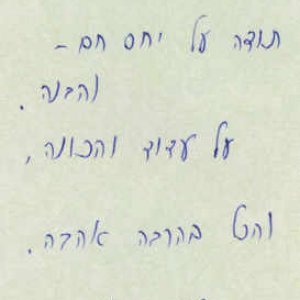 תודה על יחס חם -
והבנה.
על עדוד והכונה,
והכל בהרבה אהבה.